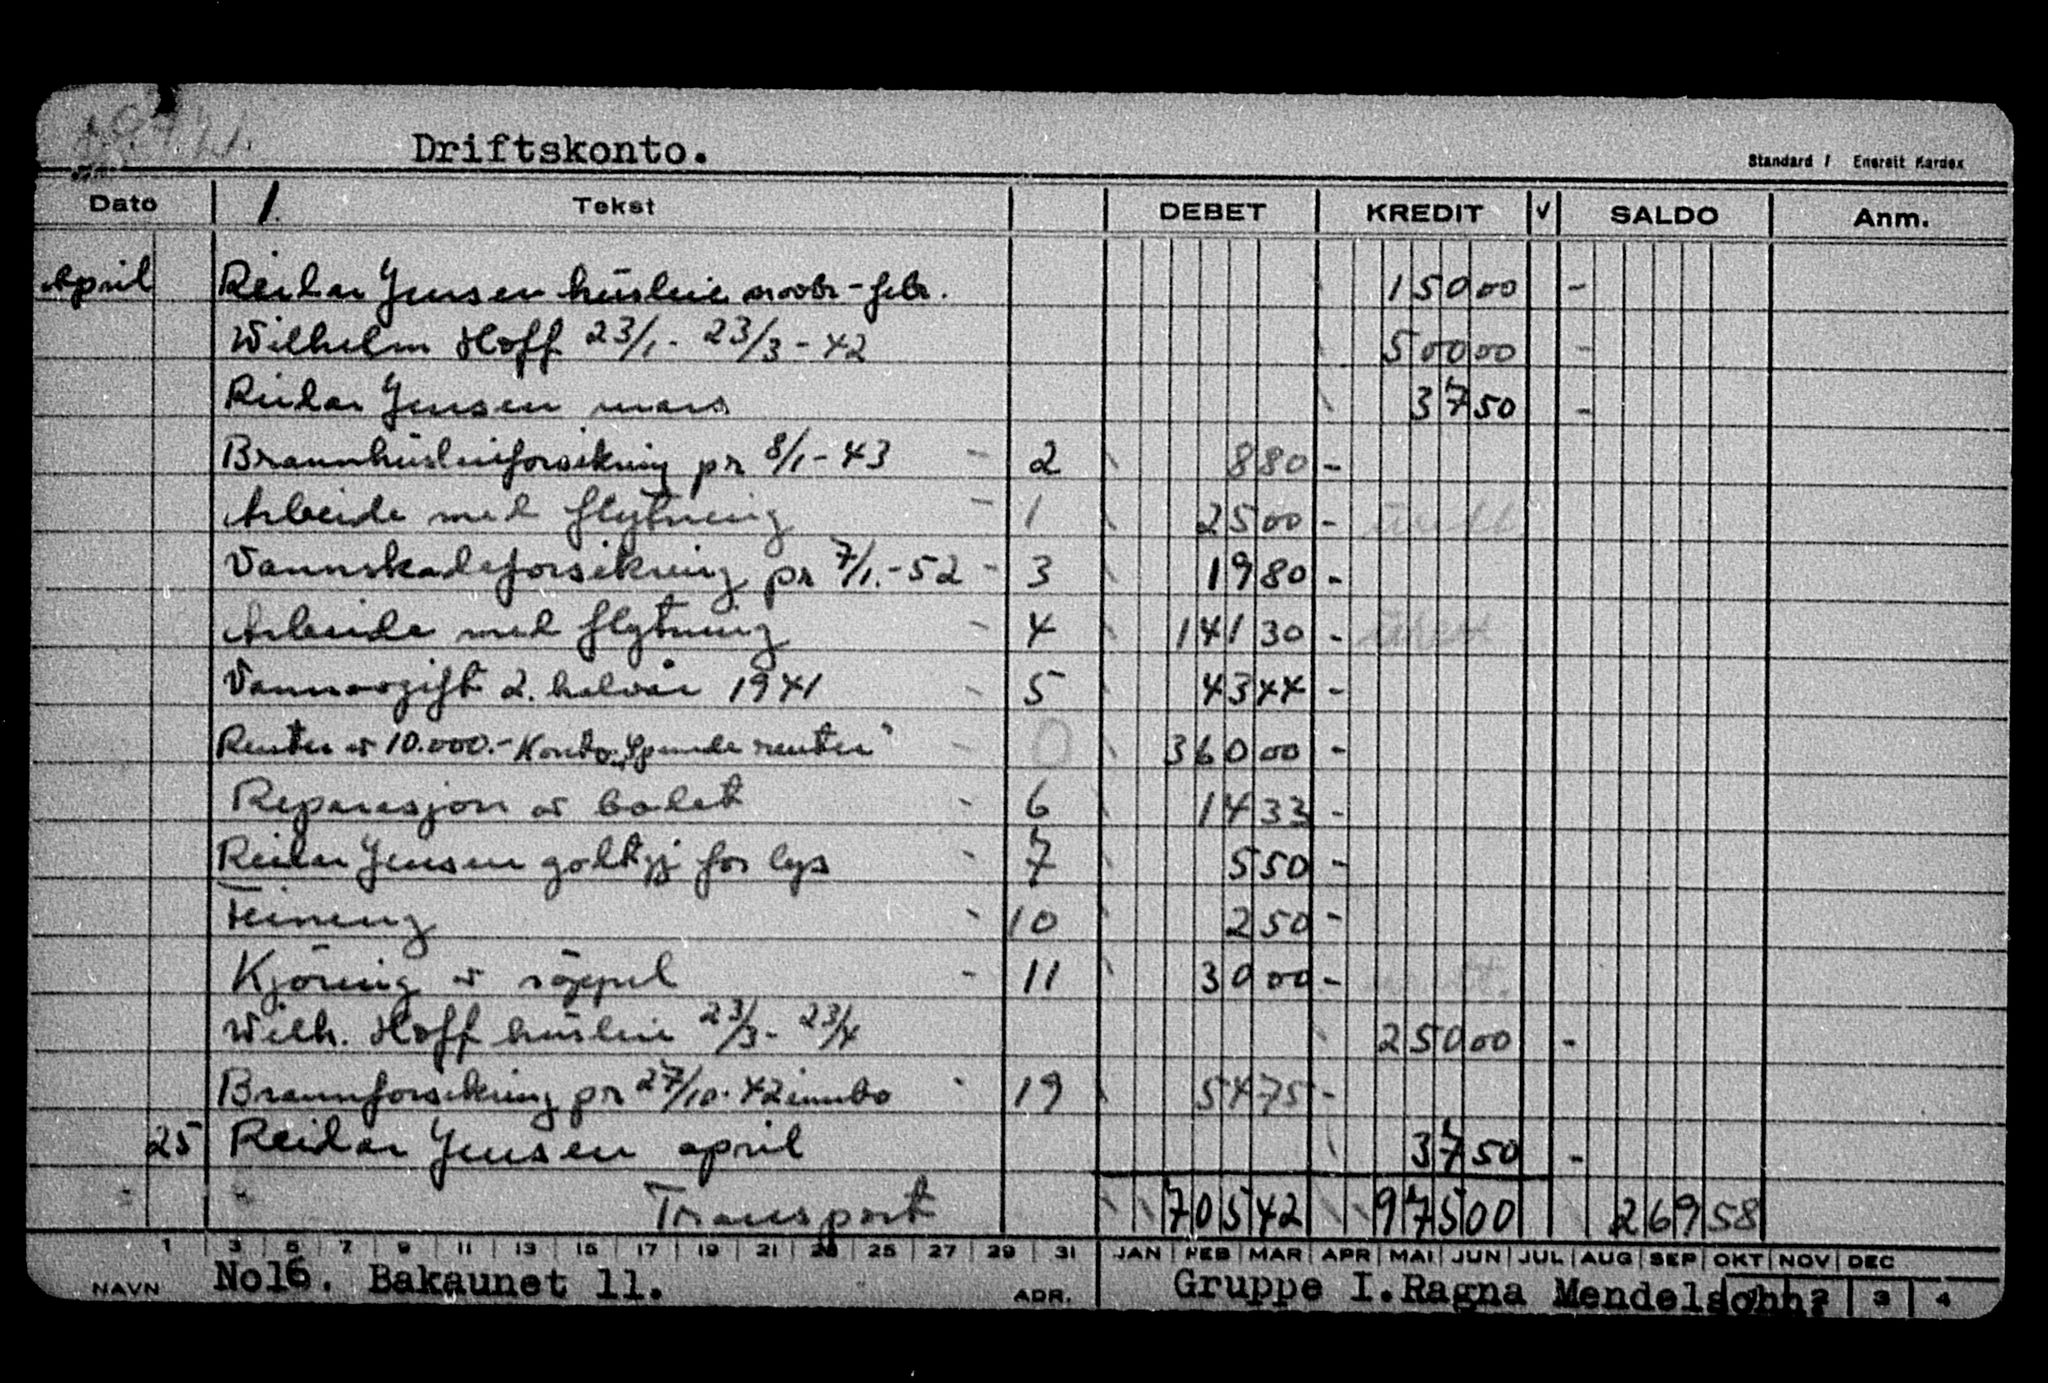 Driftskonto.
Standard I Enerett Kardex
Dato 1. Tekst DEBET KREDIT V SALDO Anm.
April Reidar Jensen húsleie novbr-febr. 150 00 -
Wilhelm Hoff 23/1- 23/3-42 500 00 -
Reidar Jensen mars 37 50 -
Brannhúsleieforsikring pr 8/1-43 - 2 8 80 -
Arbeide med flytning - 1 25 00 -
Vannskadeforsikring pr 7/1.-52 - 3 19 80 -
Arbeide med flytning - 4 141 30 -
Vannavgift 2. halvår 1941 - 5 43 44 -
Renter av 10.000.- Konto renter" - 0 360 00 -
Reparasjon av - 6 14 33 -
Reidar Jensen godtgj for lys - 7 5 50 -
Feiing - 10 2 50 -
Kjöring av söppel - 11 30 00 -
Wilh. Hoff húsleie 23/3- 23/4 250 00 -
Brannforsikring pr 27/10-42 innbo - 19 54 75 -
25 Reidar Jensen april 37 50 -
Transport 705 42 975 00 269 58
1 3 5 7 9 11 13 15 17 19 21 23 25 27 29 31 JAN FEB MAR APR MAI JUN JUL AUG SEP OKT NOV DEC
NAVN No16. Bakaunet 11. ADR. Gruppe I. Ragna Mendelsohn. 2 3 4